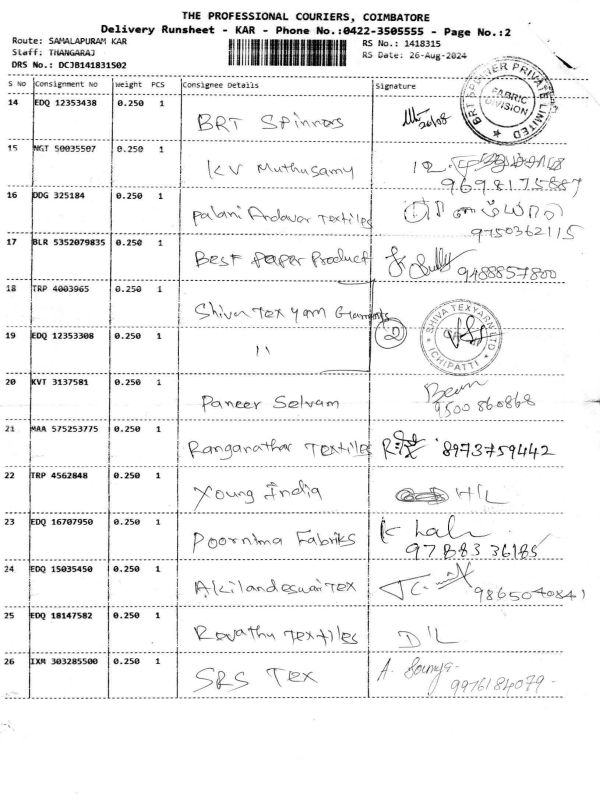 THE PROFESSIONAL COURIERS, COIMBATORE
Delivery Runsheet - KAR - Phone No.:0422-3505555 - Page No.:2
Route: SAMALAPURAM KAR
RS No.: 1418315
Staff: THANGARAJ
RS Date: 26-Aug-2024
DRS No.: DCJB141831502
S No Consignment No Weight PCS Consignee Details Signature
14 EDQ 12353438 0.250 1 BRT Spinners 26/08
BRT SPINNER PRIVATE LIMITED
FABRIC DIVISION
15 NGT 50035507 0.250 1 KV Muthusamy
9698175887
16 DDG 325184 0.250 1 Palani Andavar Textiles
9750362115
17 BLR 5352079835 0.250 1 Best Paper Product 9488857800
18 TRP 4003965 0.250 1 Shiva Tex yarn Garments
19 EDQ 12353308 0.250 1 11 2
SHIVA TEXYARN LTD
ICHIPATTI
20 KVT 3137581 0.250 1 Paneer Selvam
9500860868
21 MAA 575253775 0.250 1 Ranganathar Textiles 8973759442
22 TRP 4562848 0.250 1 Young India H/L
23 EDQ 16707950 0.250 1 Poornima Fabriks
24 EDQ 15035450 0.250 1 Akilandeswari Tex 9865040841
25 EDQ 18147582 0.250 1 Revathy Textiles D/L
26 IXM 303285500 0.250 1 SRS Tex A. Sowmya
9976184079